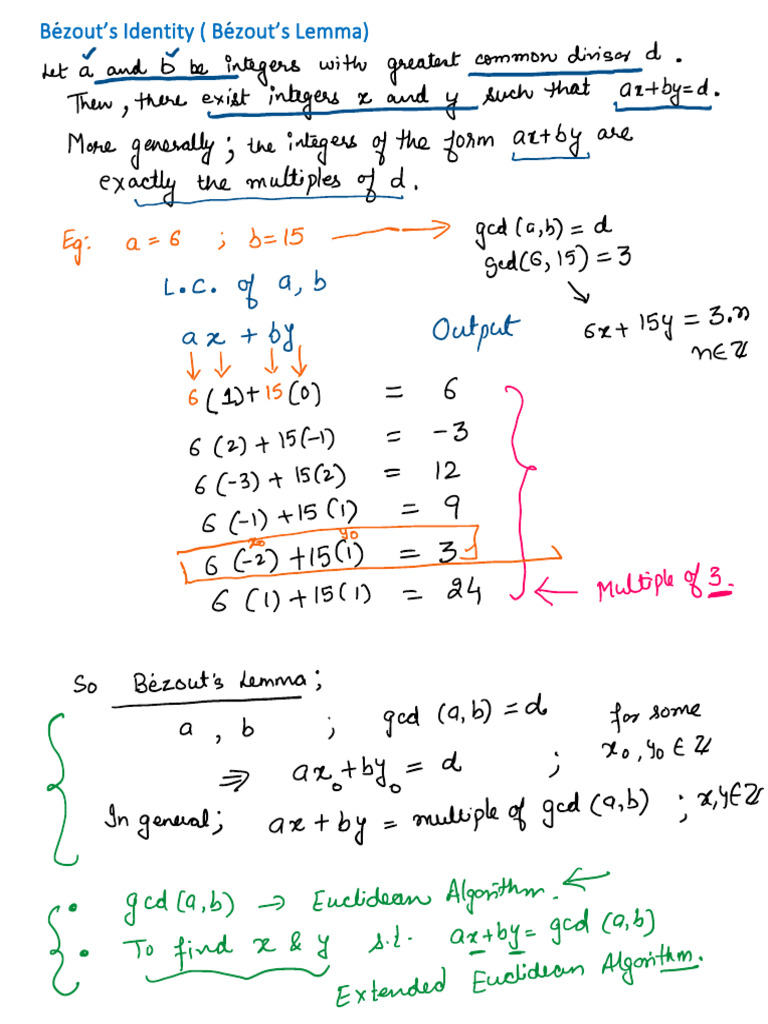 Bézout's Identity ( Bézout's Lemma)
Let a and b be integers with greatest common divisor d.
Then, there exist integers x and y such that ax+by=d.
More generally; the integers of the form ax+by are
exactly the multiples of d.
Eg: a=6 ; b=15 → gcd(a,b)=d
gcd(6,15)=3
L.C. of a, b
6x+15y=3.n
n∈ℤ
ax + by Output
6(1)+15(0) = 6
6(2)+15(-1) = -3
6(-3)+15(2) = 12
6(-1)+15(1) = 9
x₀ y₀
6(-2)+15(1) = 3
6(1)+15(1) = 24 ← Multiple of 3.
So Bézout's Lemma;
a, b ; gcd(a,b)=d for some
⇒ ax₀+by₀=d ; x₀,y₀∈ℤ
In general; ax+by = multiple of gcd(a,b) ; x,y∈ℤ
• gcd(a,b) → Euclidean Algorithm. ←
• To find x & y s.t. ax+by=gcd(a,b)
Extended Euclidean Algorithm.